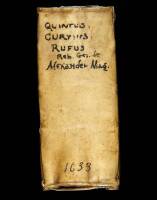 QUINTUS.
CURTIUS.
RUFUS
Reb. Ges. de
Alexander Mag.
1633